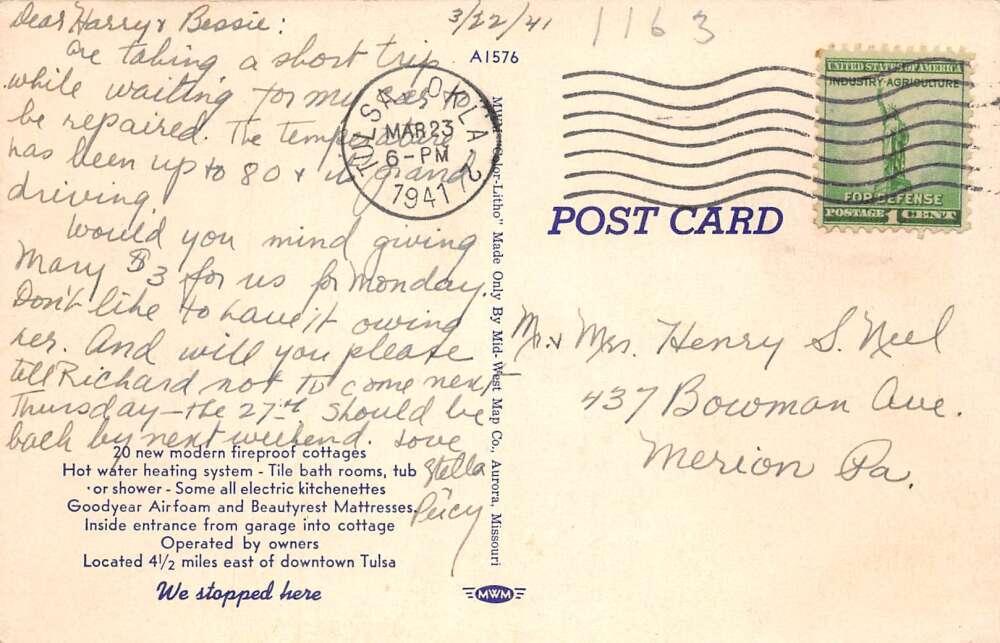 Dear Harry & Bessie:
3/22/41
1163
are taking a short trip
while waiting for my car to
be repaired. The temperature
has been up to 80 & is grand
driving
Would you mind giving
Mary $3 for us for Monday.
Don't like to have it owing
her. And will you please
tell Richard not to come next
Thursday - the 27th Should be
back by next weekend. Love
Stella
Percy
20 new modern fireproof cottages
Hot water heating system - Tile bath rooms, tub
or shower - Some all electric kitchenettes
Goodyear Airfoam and Beautyrest Mattresses.
Inside entrance from garage into cottage
Operated by owners
Located 4 1/2 miles east of downtown Tulsa
We stopped here
A1576
TULSA, OKLA. 2
MAR 23
6-PM
1941
MWM "Color-Litho" Made Only By Mid-West Map Co., Aurora, Missouri
MWM
UNITED STATES OF AMERICA
INDUSTRY·AGRICULTURE
FOR DEFENSE
POSTAGE 1 CENT
POST CARD
Mr. & Mrs. Henry S. Neel
437 Bowman Ave.
Merion Pa.